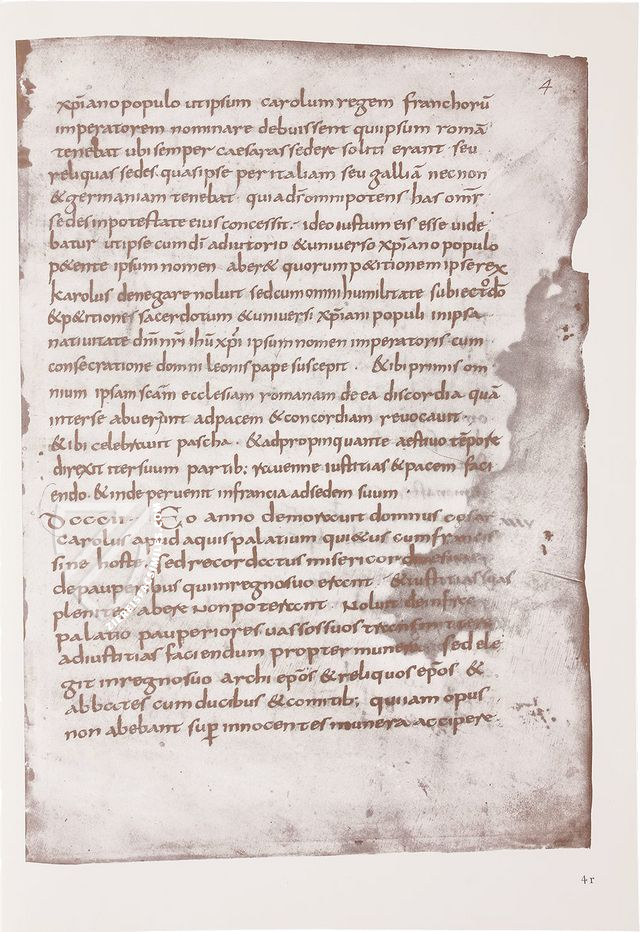 4
xp̄iano populo ut ipsum carolum regem franchorū
imperatorem nominare debuissent qui ipsum romā
tenebat ubi semper caesaras sedere soliti erant seu
reliquas sedes quas ipse per italiam seu galliā nec non
& germaniam tenebat quia d̄s omnipotens has om̄s
sedes in potestate eius concessit. ideo iustum eis esse uide
batur ut ipse cum dī adiutorio & uniuerso xp̄iano populo
p&ente ipsum nomen aber& quorum p&itionem ipse rex
karolus denegare noluit sed cum omni humilitate subiectus dō
& p&itiones sacerdotum & uniuersi xp̄iani populi in ipsa
natiuitate dn̄i nr̄i ih̄u xp̄i ipsum nomen imperatoris cum
consecratione domni leonis pape suscepit. & ibi primis om
nium ipsam sc̄am ecclesiam romanam de ea discordia quā
inter se abuerunt ad pacem & concordiam reuocauit
& ibi celebrauit pascha. & adpropinquante aestiuo tēpore
direxit iter suum partib; rauenne iustitias & pacem faci
endo. & inde peruenit in francia ad sedem suum
Dcccii. Eo anno demorauit domnus cesar
carolus apud aquis palatium qui&us cum francis
sine hoste sed recordatus misericordiae suae
de pauperibus qui in regno suo erant & iustitias suas
pleniter abere non poterant. Noluit de infra
palatio pauperiores uassos suos transmittere
ad iustitias faciendum propter munera sed ele
git in regno suo archiep̄os & reliquos ep̄os &
abbates cum ducibus & comitib; qui iam opus
non abebant sup̄ innocentes munera accipere
4r